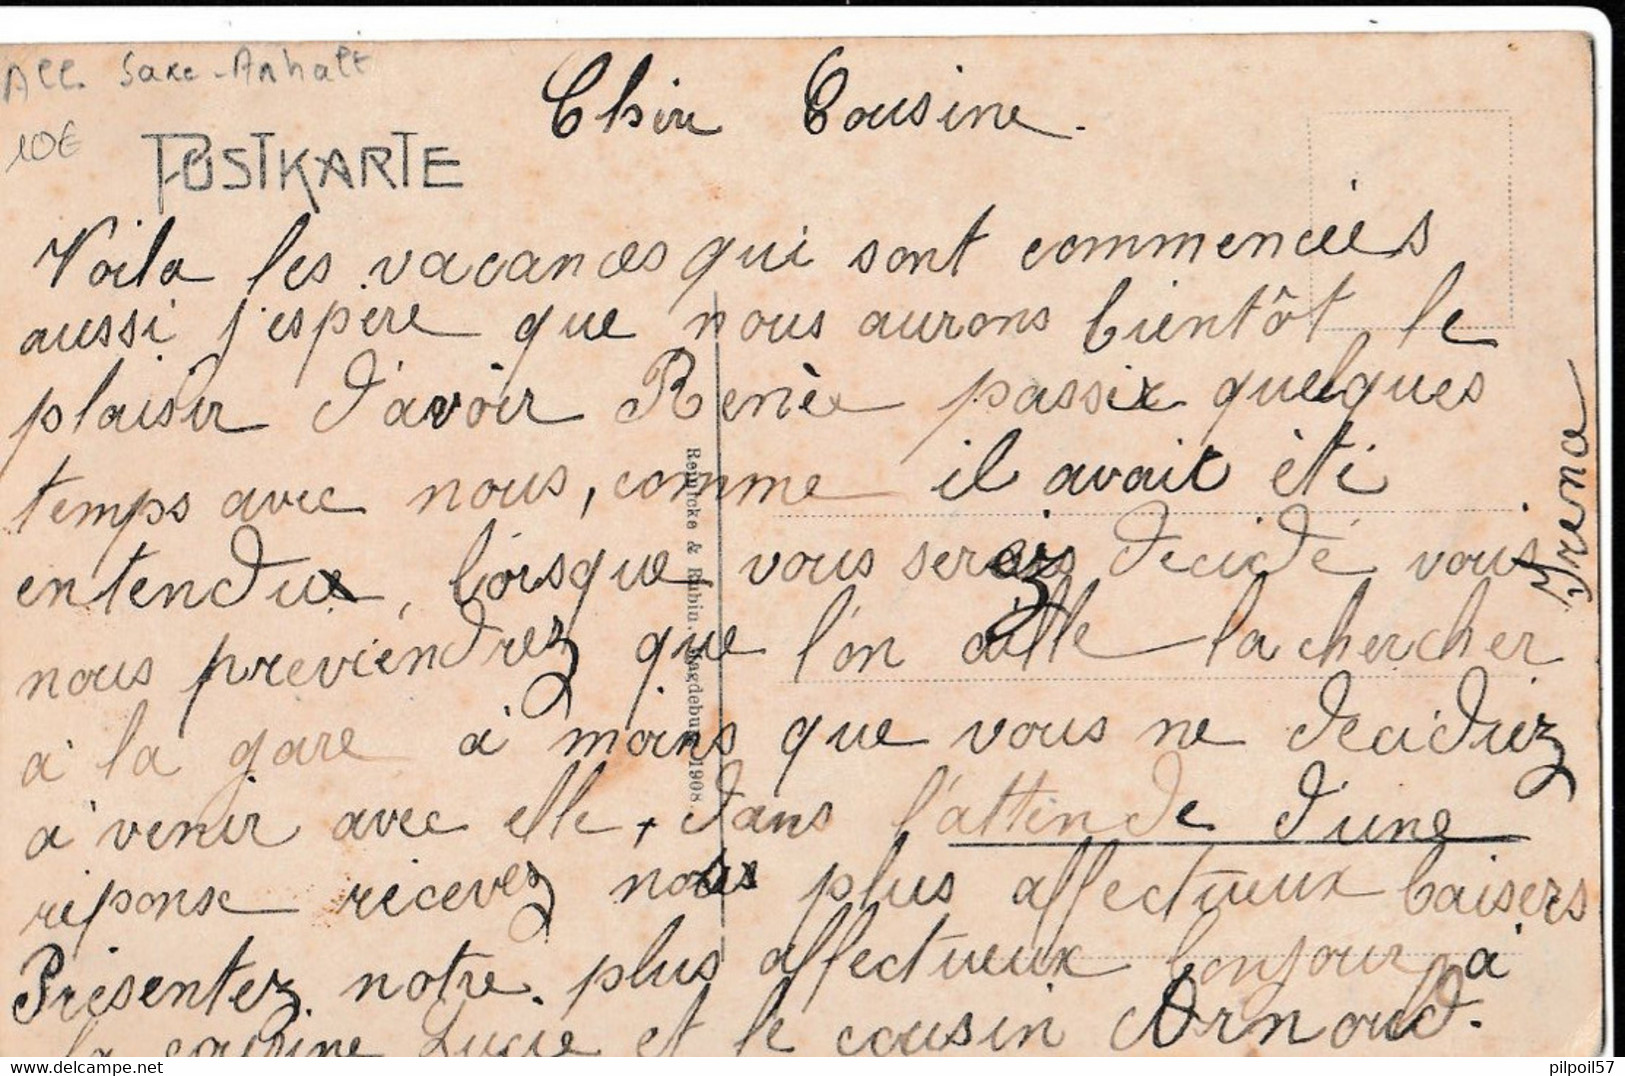 All. Saxe-Anhalt
10€
POSTKARTE
Chère Cousine.
Voila les vacances qui sont commencées
aussi j'espère que nous aurons bientôt le
plaisir d'avoir Renée passer quelques
temps avec nous, comme il avait été
entendu, lorsque vous serez decidé vous
nous previendrez que l'on aille la chercher
à la gare à moins que vous ne decidiez
à venir avec elle, dans l'attende d'une
réponse recevez nos plus affectueux baisers
Présentez notre plus affectueux bonjour à
la cousine Lucie et le cousin Arnoud.
Irena
Reinicke & Rubin, Magdeburg 1908.
pilpoil57